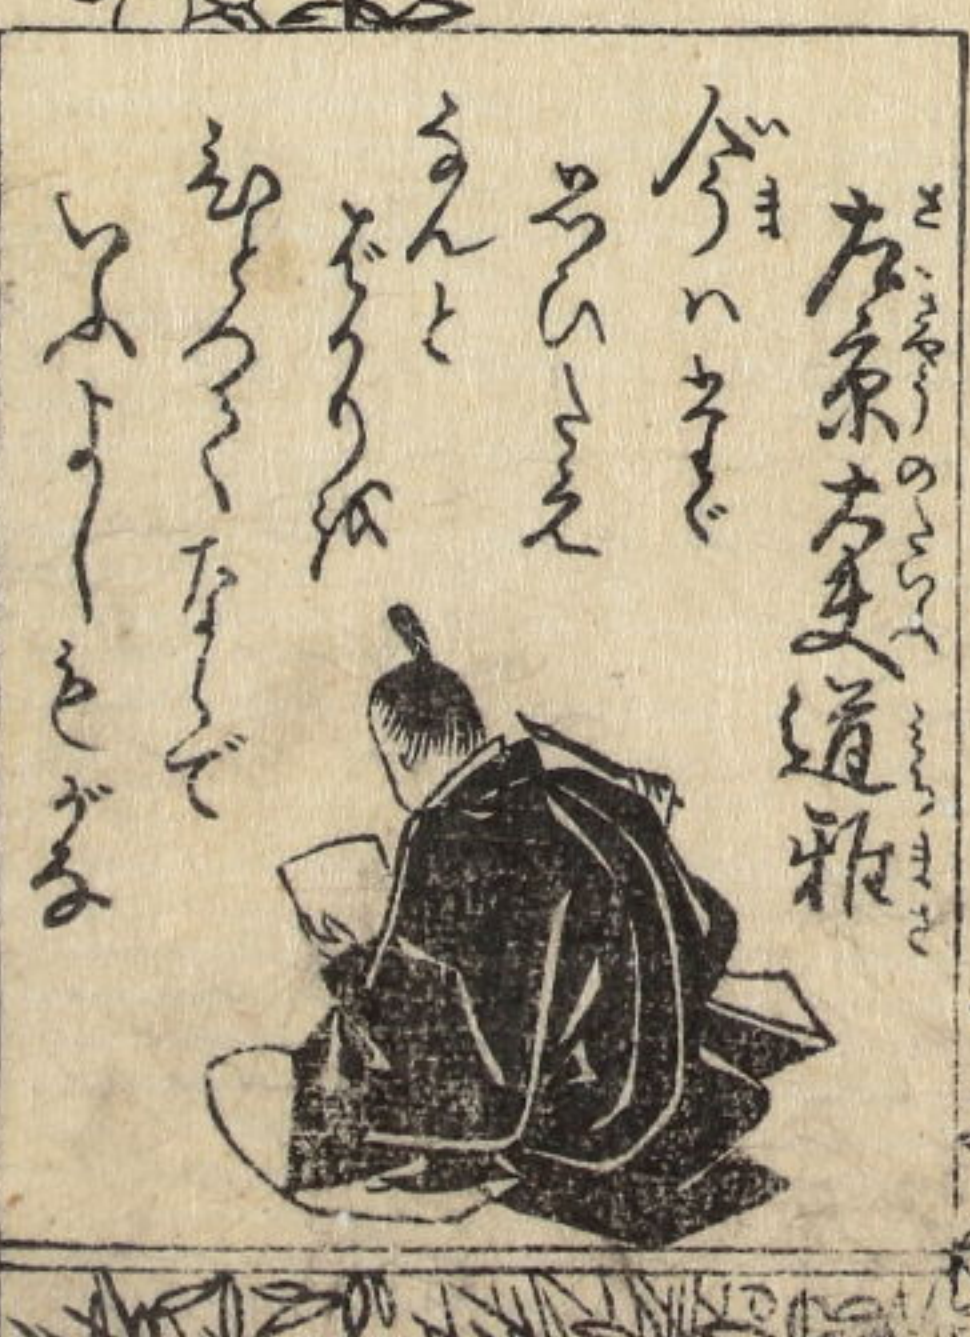 さきやうのたいふ みちまさ
左京大夫道雅
いま
今ハたゞ
思ひたえ
なんと
ばかりを
ひとつてならで
いふよしもがな